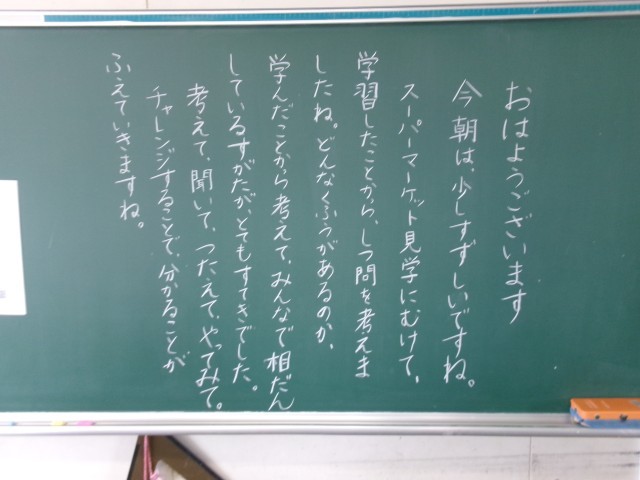 おはようございます
今朝は、少しすずしいですね。
スーパーマーケット見学にむけて、
学習したことから、しつ問を考えま
したね。どんなくふうがあるのか、
学んだことから考えて、みんなで相だん
しているすがたが、とてもすてきでした。
考えて、聞いて、つたえて、やってみて。
チャレンジすることで、分かることが
ふえていきますね。